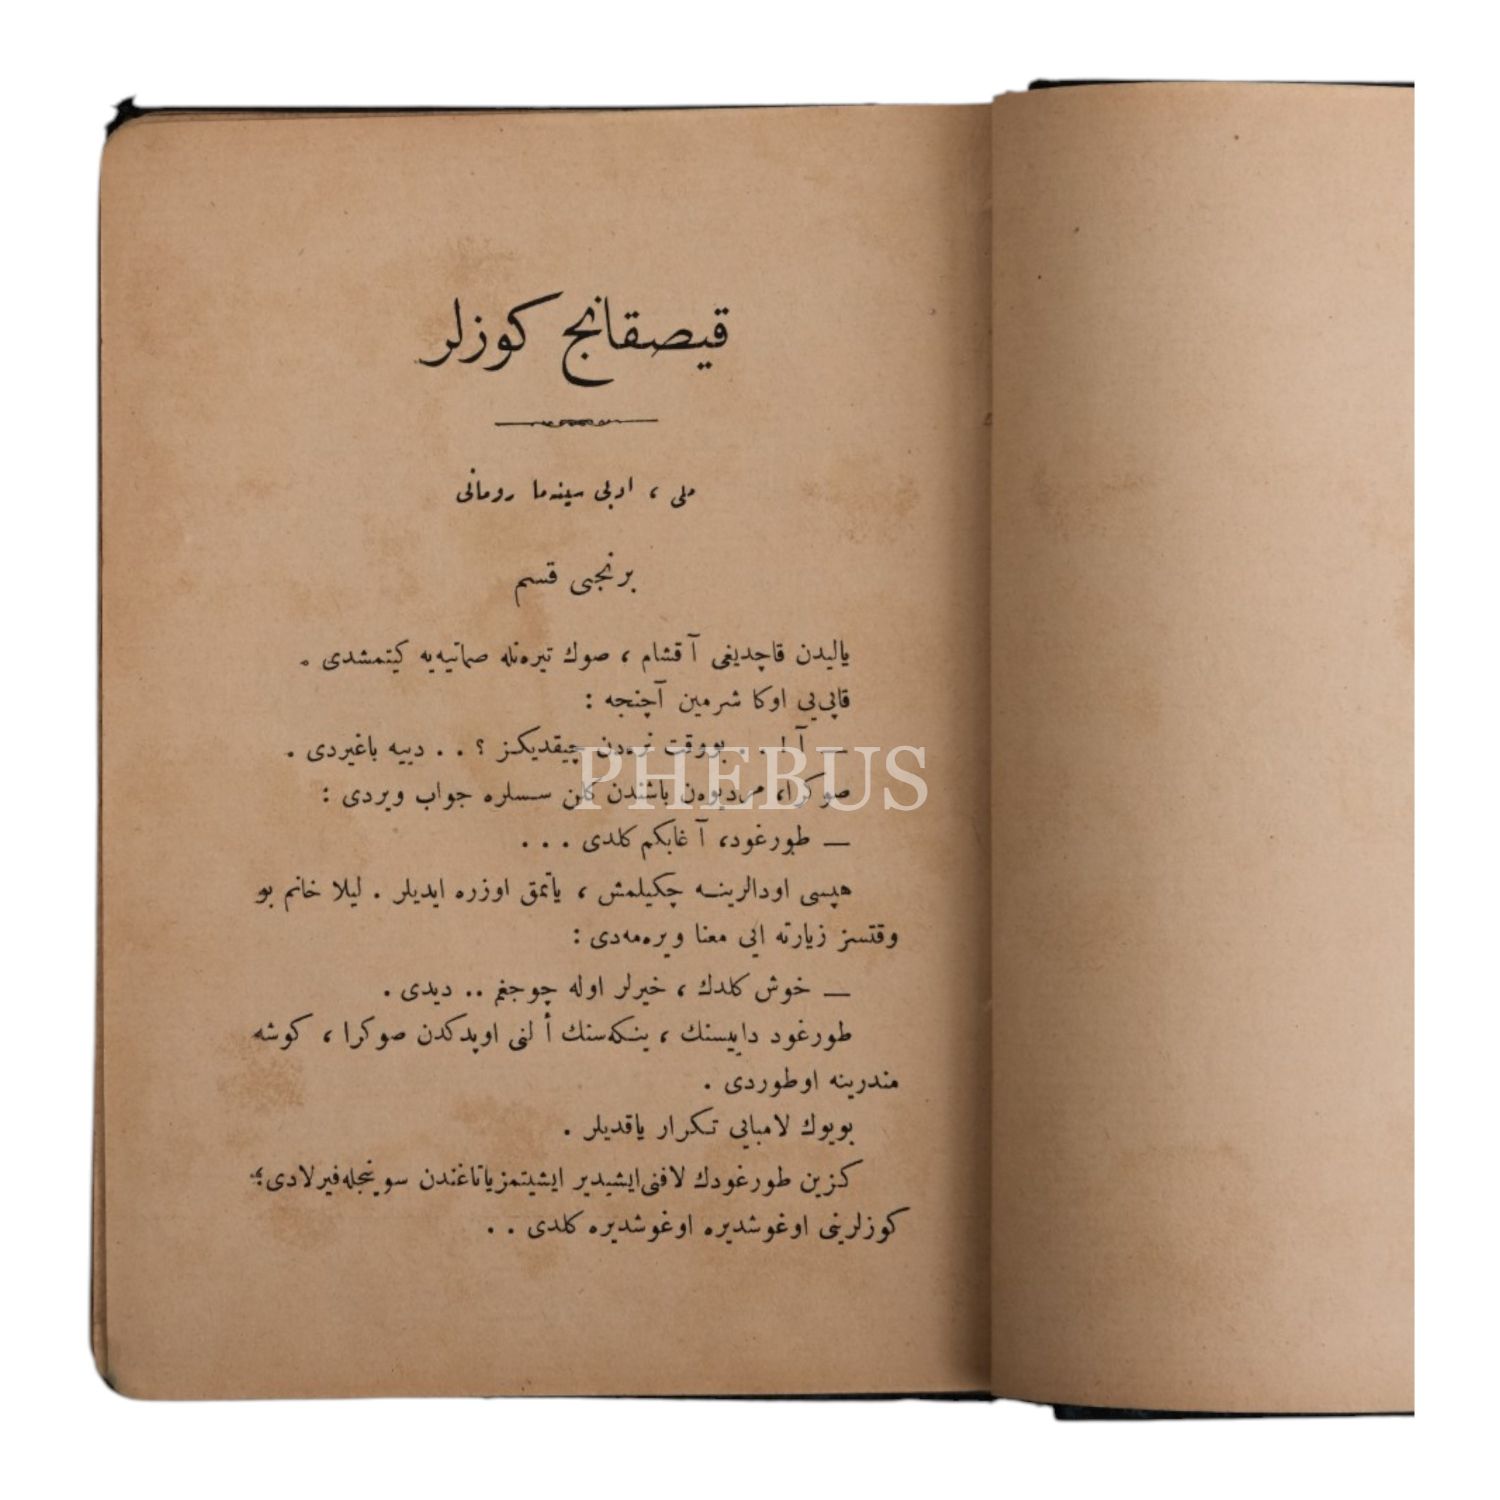 قیصقانج کوزلر
ملی ، ادبی سینه‌ما رومانی
برنجی قسم
یالیدن قاچدیغی آقشام ، صوك تیره‌نله صماتیه‌یه کیتمشدی .
قاپی‌یی اوکا شرمین آچنجه :
— آ !.. بووقت نره‌دن چیقدیکز ؟ . . دییه باغیردی .
صوکرا، مردیوه‌ن باشندن کلن سسلره جواب ویردی :
— طورغود، آغابکم کلدی . . .
هپسی اودالرینه چکیلمش ، یاتمق اوزره ایدیلر . لیلا خانم بو
وقتسز زیارته ایی معنا ویره‌مه‌دی :
— خوش کلدك ، خیرلر اوله چوجغم .. دیدی .
طورغود داییسنك ، ینکه‌سنك ألنی اوپدکدن صوکرا ، کوشه
مندرینه اوطوردی .
بویوك لامبایی تکرار یاقدیلر .
کزین طورغودك لافنی ایشیدیر ایشیتمز یاتاغندن سوینجله فیرلادی ؛
کوزلرینی اوغوشدیره اوغوشدیره کلدی . .
PHEBUS